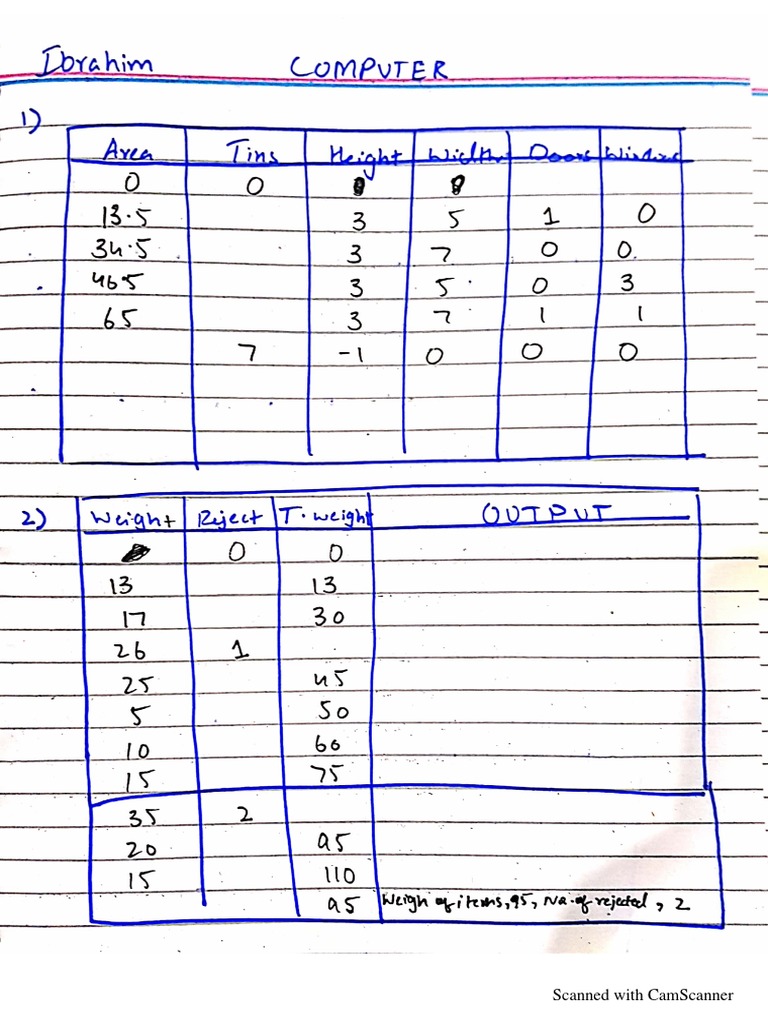 Ibrahim COMPUTER
1)
Area Tins Height Width Doors Windows
0 0 0 0
13.5 3 5 1 0
34.5 3 7 0 0
46.5 3 5 0 3
65 3 7 1 1
7 -1 0 0 0
2) Weight Reject T.weight OUTPUT
0 0
13 13
17 30
26 1
25 45
5 50
10 60
15 75
35 2
20 95
15 110
95 Weigh of items, 95, No. of rejected, 2
Scanned with CamScanner